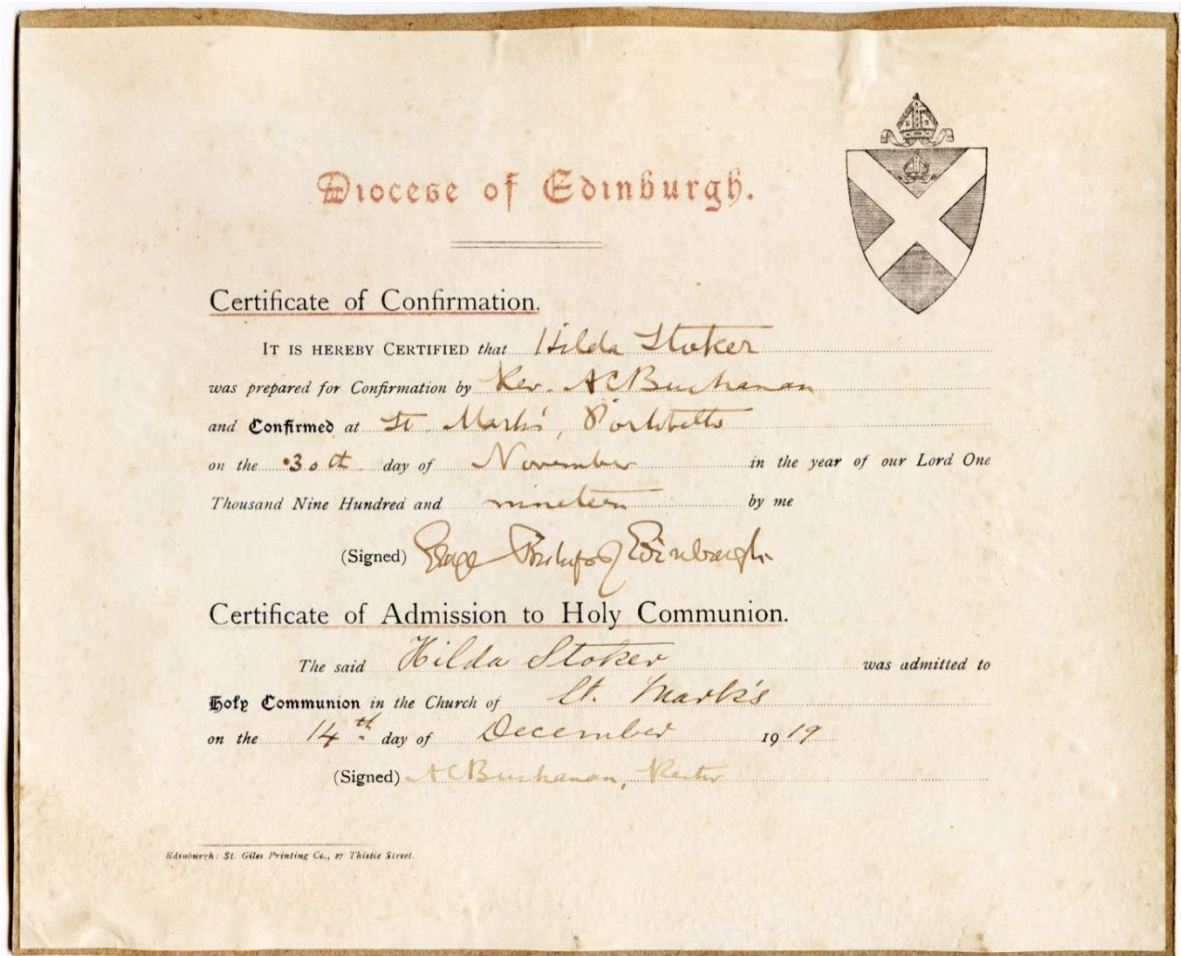 Diocese of Edinburgh.
Certificate of Confirmation.
IT IS HEREBY CERTIFIED that Hilda Stoker
was prepared for Confirmation by Rev. A C Buchanan
and Confirmed at St. Mark's, Portobello
on the 30th day of November in the year of our Lord One
Thousand Nine Hundred and nineteen by me
(Signed) George Bishop of Edinburgh.
Certificate of Admission to Holy Communion.
The said Hilda Stoker was admitted to
Holy Communion in the Church of St. Mark's
on the 14th day of December 1919
(Signed) A C Buchanan, Rector
Edinburgh: St. Giles Printing Co., 27 Thistle Street.